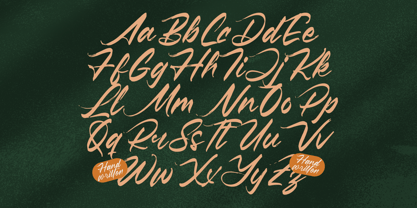 Aa Bb Cc Dd Ee
Ff Gg Hh Ii Jj Kk
Ll Mm Nn Oo Pp
Qq Rr Ss Tt Uu Vv
Hand written
Ww Xx Yy Zz
Hand written